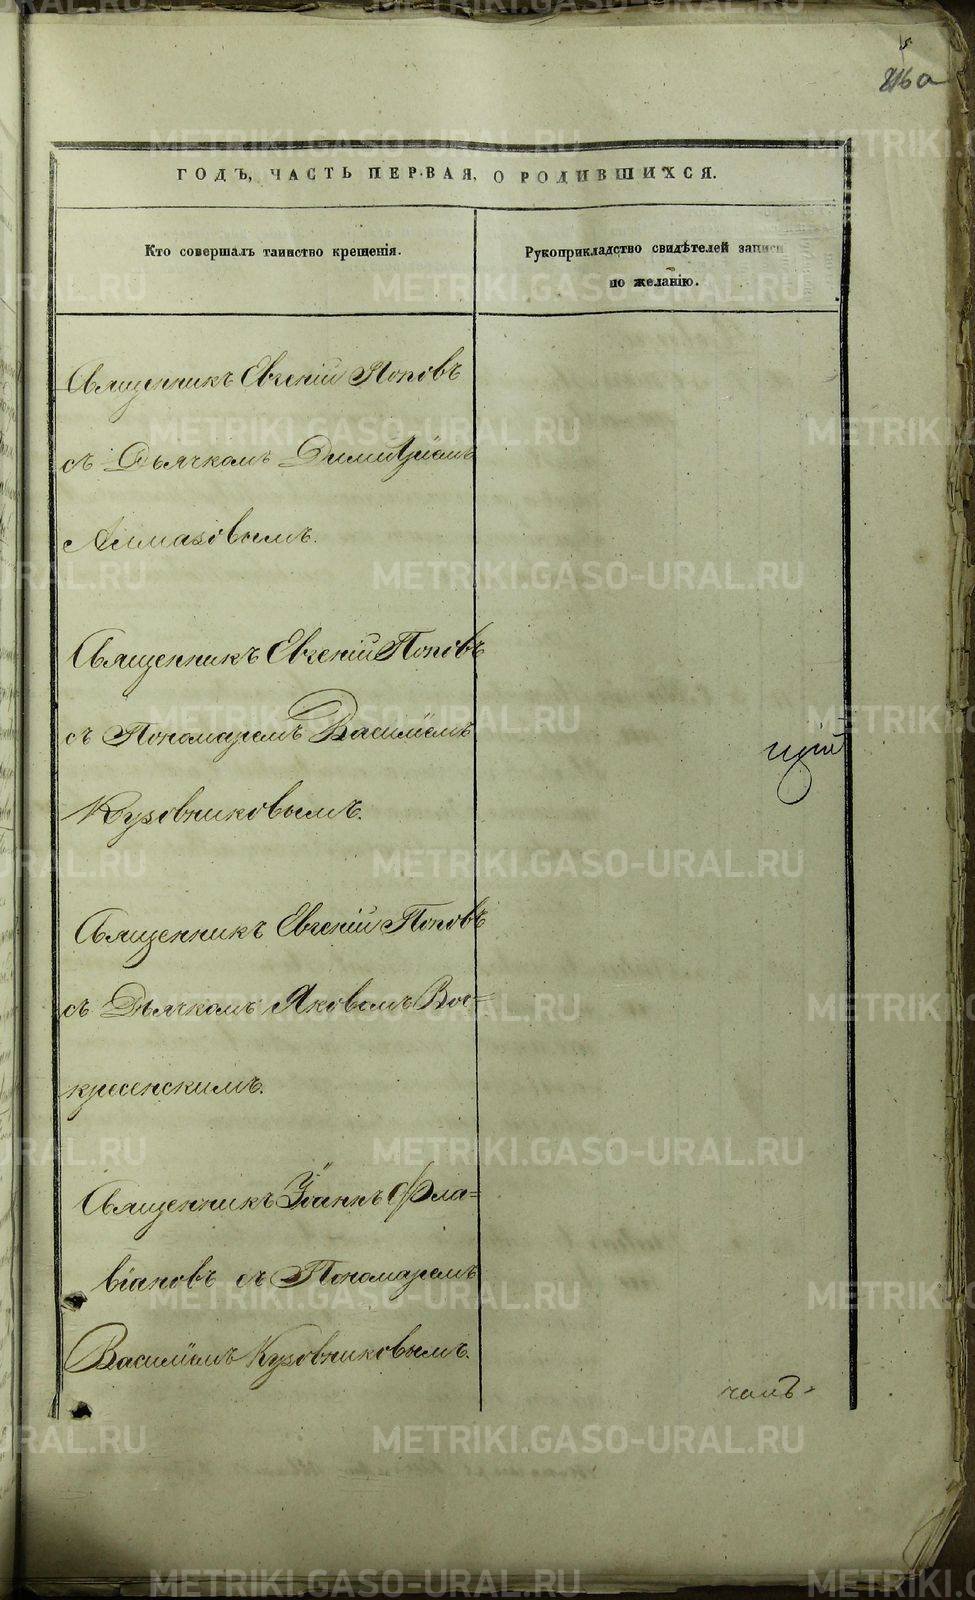 216а
ГОДЪ, ЧАСТЬ ПЕРВАЯ, О РОДИВШИХСЯ.
Кто совершалъ таинство крещенія.
Рукоприкладство свидѣтелей записи
по желанію.
Священникъ Евгеній Поповъ
съ Дьячкомъ Димитріемъ
Алмазовымъ.
Священникъ Евгеній Поповъ
съ Пономаремъ Василіемъ
Кузовниковымъ.
Священникъ Евгеній Поповъ
съ Дьячкомъ Яковомъ Вос=
кресенскимъ.
Священникъ Іоаннъ Фла=
віановъ съ Пономаремъ
Василіемъ Кузовниковымъ.
METRIKI.GASO-URAL.RU